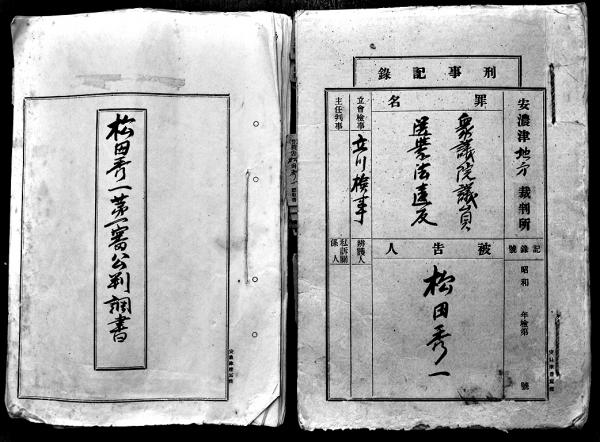 松田秀一第一審公判調書
刑事記錄
安濃津地方裁判所
記錄號
昭和 年檢第 號
罪名
衆議院議員
選擧法違反
被告人
松田秀一
立會檢事
立川檢事
主任判事
辨護人
私訴關係人